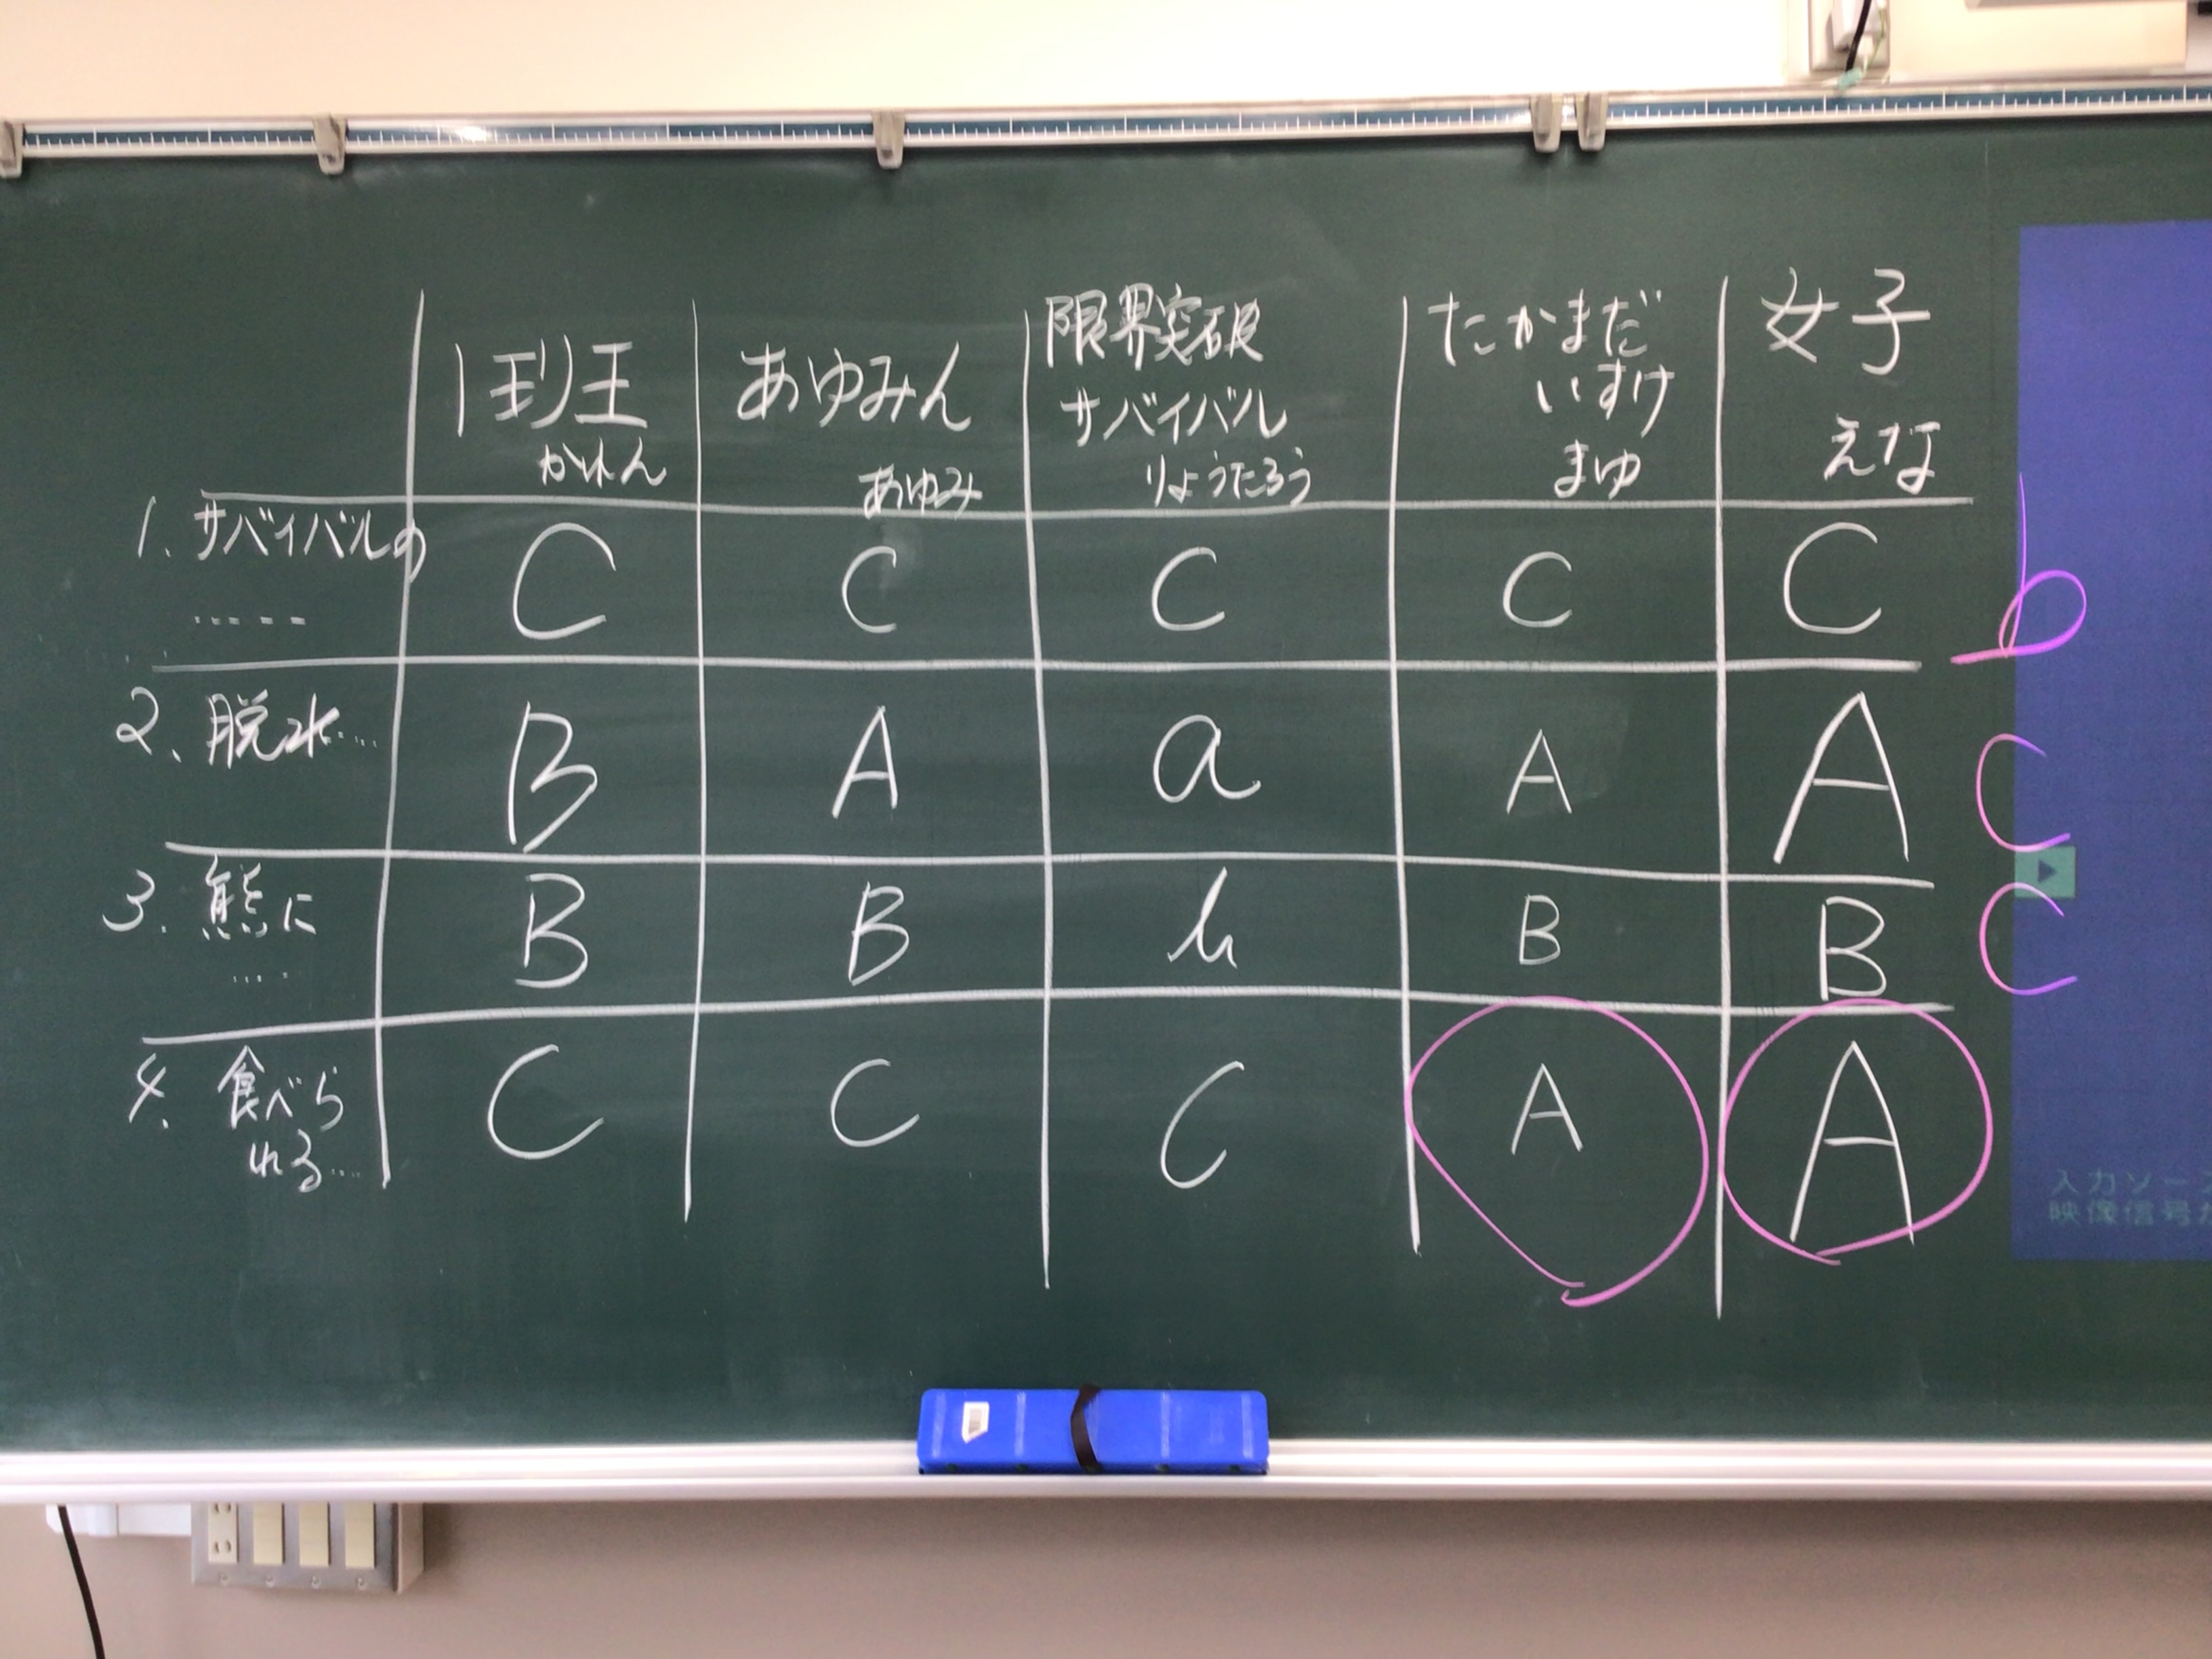 1班王
かれん
あゆみん
あゆみ
限界突破
サバイバル
りょうたろう
たかまだ
いすけ
まゆ
女子
えな
1. サバイバルの
.....
C C C C C b
2. 脱水....
B A a A A C
3. 熊に
....
B B h B B C
4. 食べら
れる...
C C C A A
入力ソー
映像信号